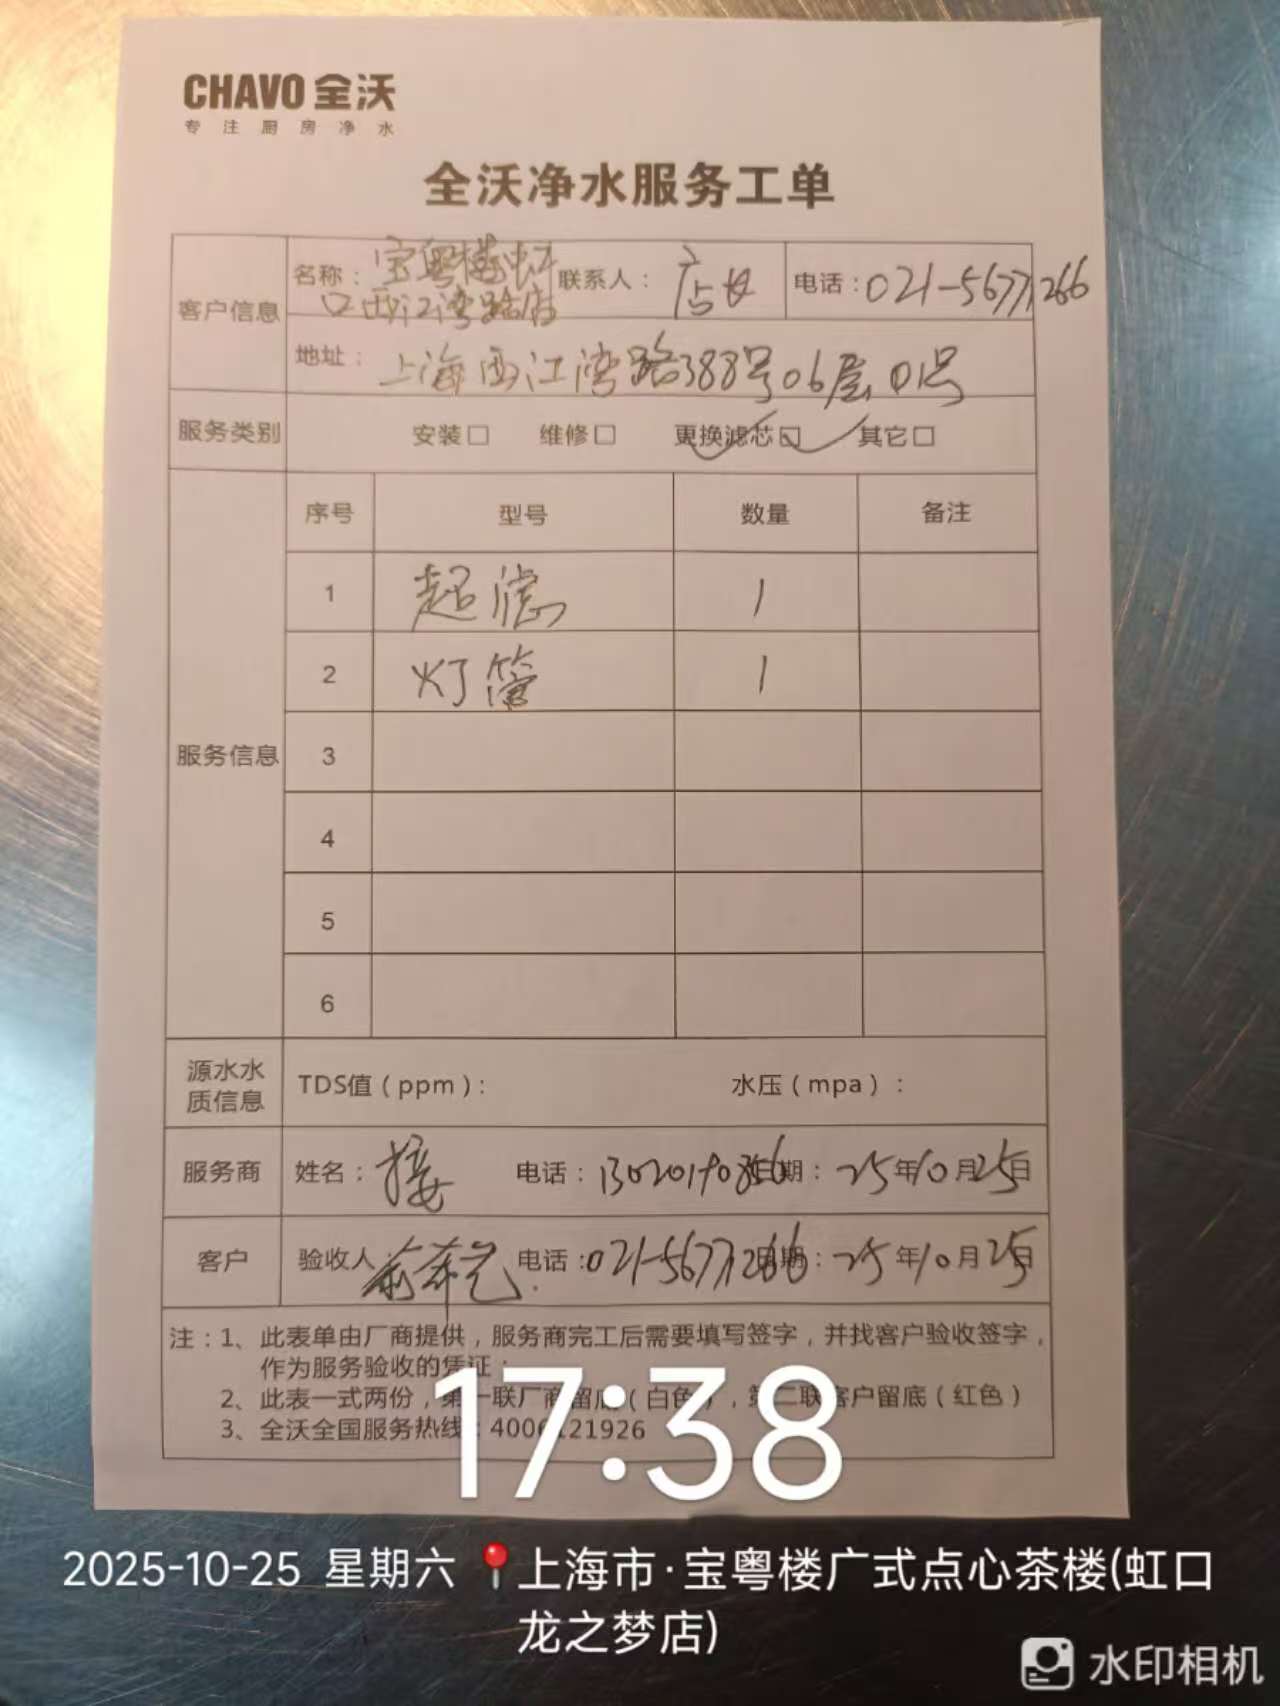 CHAVO 全沃
专注厨房净水
全沃净水服务工单
客户信息
名称：宝粤楼虹口西江湾路店 联系人：店长 电话：021-56771266
地址：上海西江湾路388号06层01号
服务类别 安装□ 维修□ 更换滤芯☑ 其它□
服务信息
序号 型号 数量 备注
1 超滤 1
2 灯管 1
3
4
5
6
源水水质信息 TDS值（ppm）： 水压（mpa）：
服务商 姓名： 电话： 日期：25年10月25日
客户 验收人： 电话：021-56771266 日期：25年10月25日
注：1、此表单由厂商提供，服务商完工后需要填写签字，并找客户验收签字，
作为服务验收的凭证；
2、此表一式两份，第一联厂商留底（白色），第二联客户留底（红色）
3、全沃全国服务热线：4006121926
17:38
2025-10-25 星期六 上海市·宝粤楼广式点心茶楼(虹口
龙之梦店)
水印相机